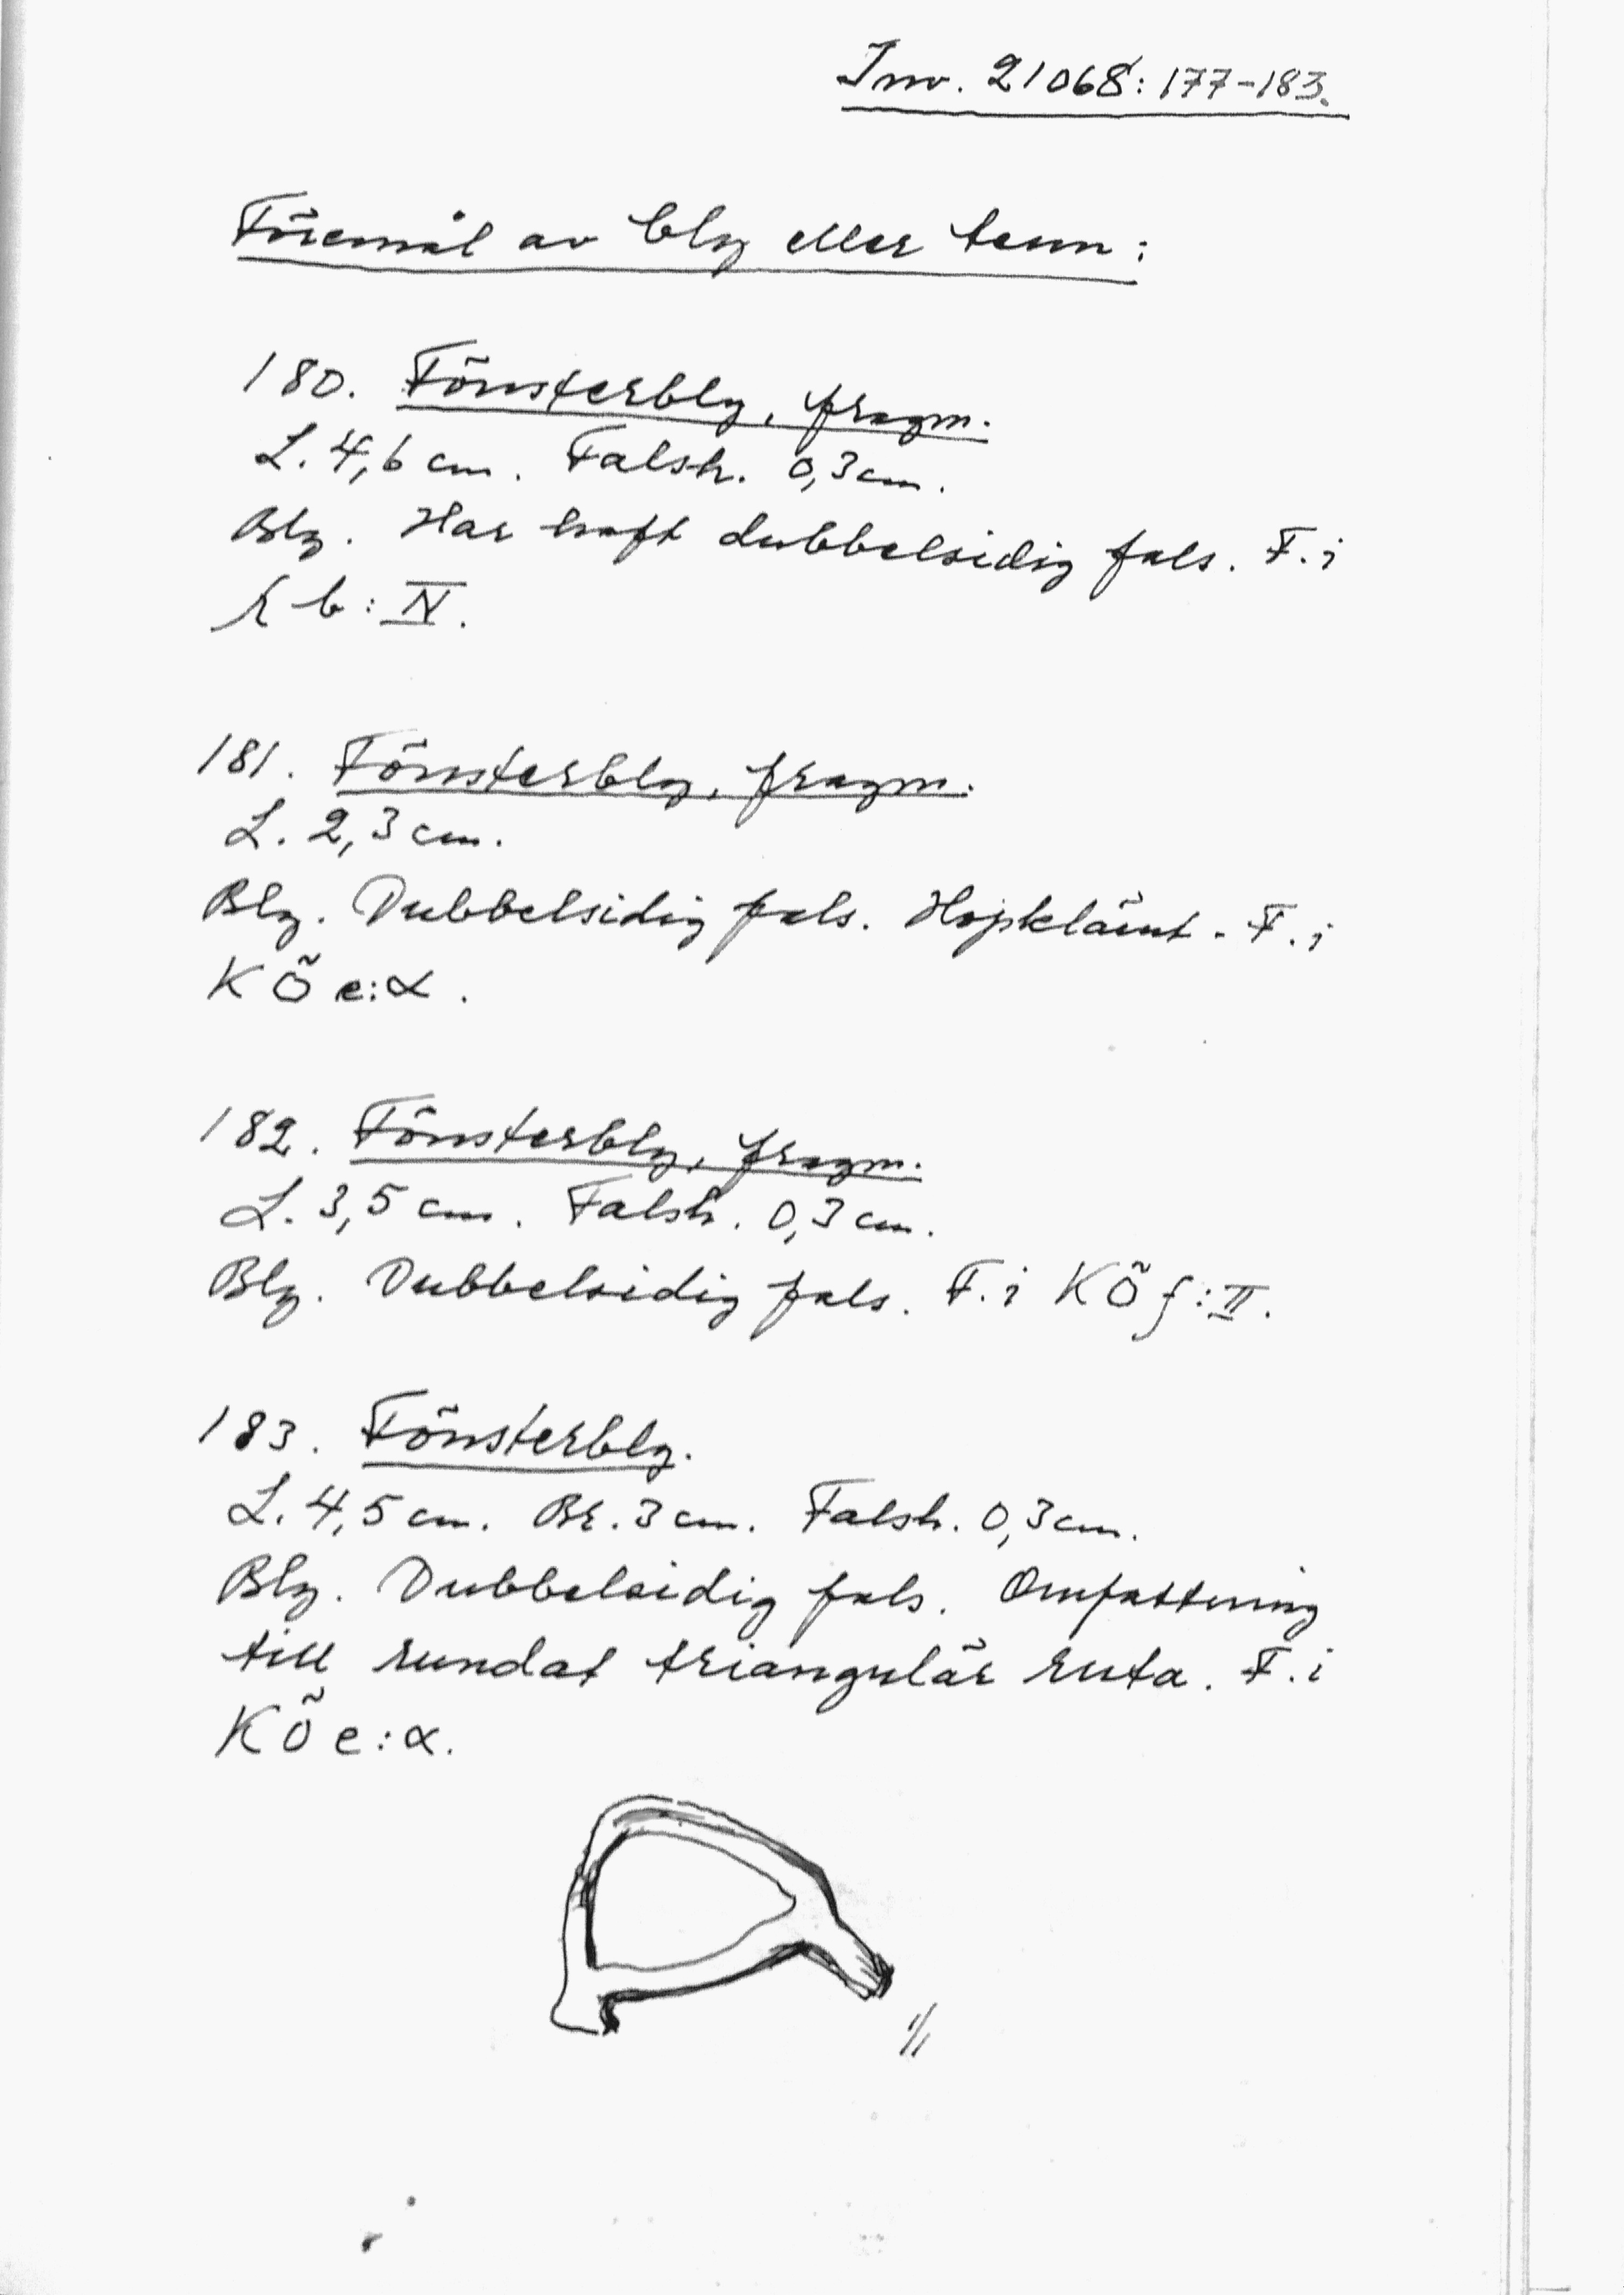 Inv. 21068:177-183.
Föremål av bly eller tenn:
180. Fönsterbly, fragm.
L. 4,6 cm. Falsh. 0,3 cm.
Bly. Har haft dubbelsidig fals. F. i
b: IV.
181. Fönsterbly, fragm.
L. 2,3 cm.
Bly. Dubbelsidig fals. Hopklämt. F. i
KÖ e:α.
182. Fönsterbly, fragm.
L. 3,5 cm. Falsh. 0,3 cm.
Bly. Dubbelsidig fals. F. i KÖ f:II.
183. Fönsterbly.
L. 4,5 cm. Br. 3 cm. Falsh. 0,3 cm.
Bly. Dubbelsidig fals. Omfattning
till rundat triangulär ruta. F. i
KÖ e:α.
1/1